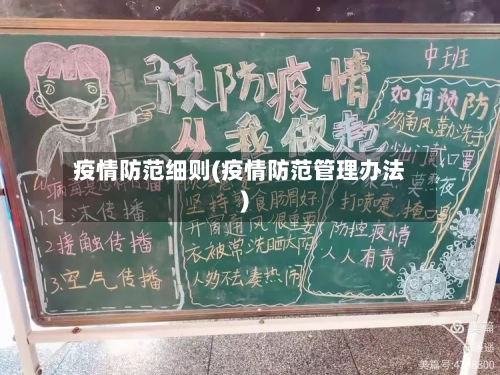 中班
预防疫情
从我做起
疫情防范细则(疫情防范管理办法
)
1.飞沫传播
2.接触传播
3.空气传播
坚持
食肠胃好
开窗通风很重要
衣被常洗晒太阳
人多不去凑热闹
如何预防
多通风勤洗手
出门戴口罩
打喷嚏
防控疫情
人人有责
美篇号:4